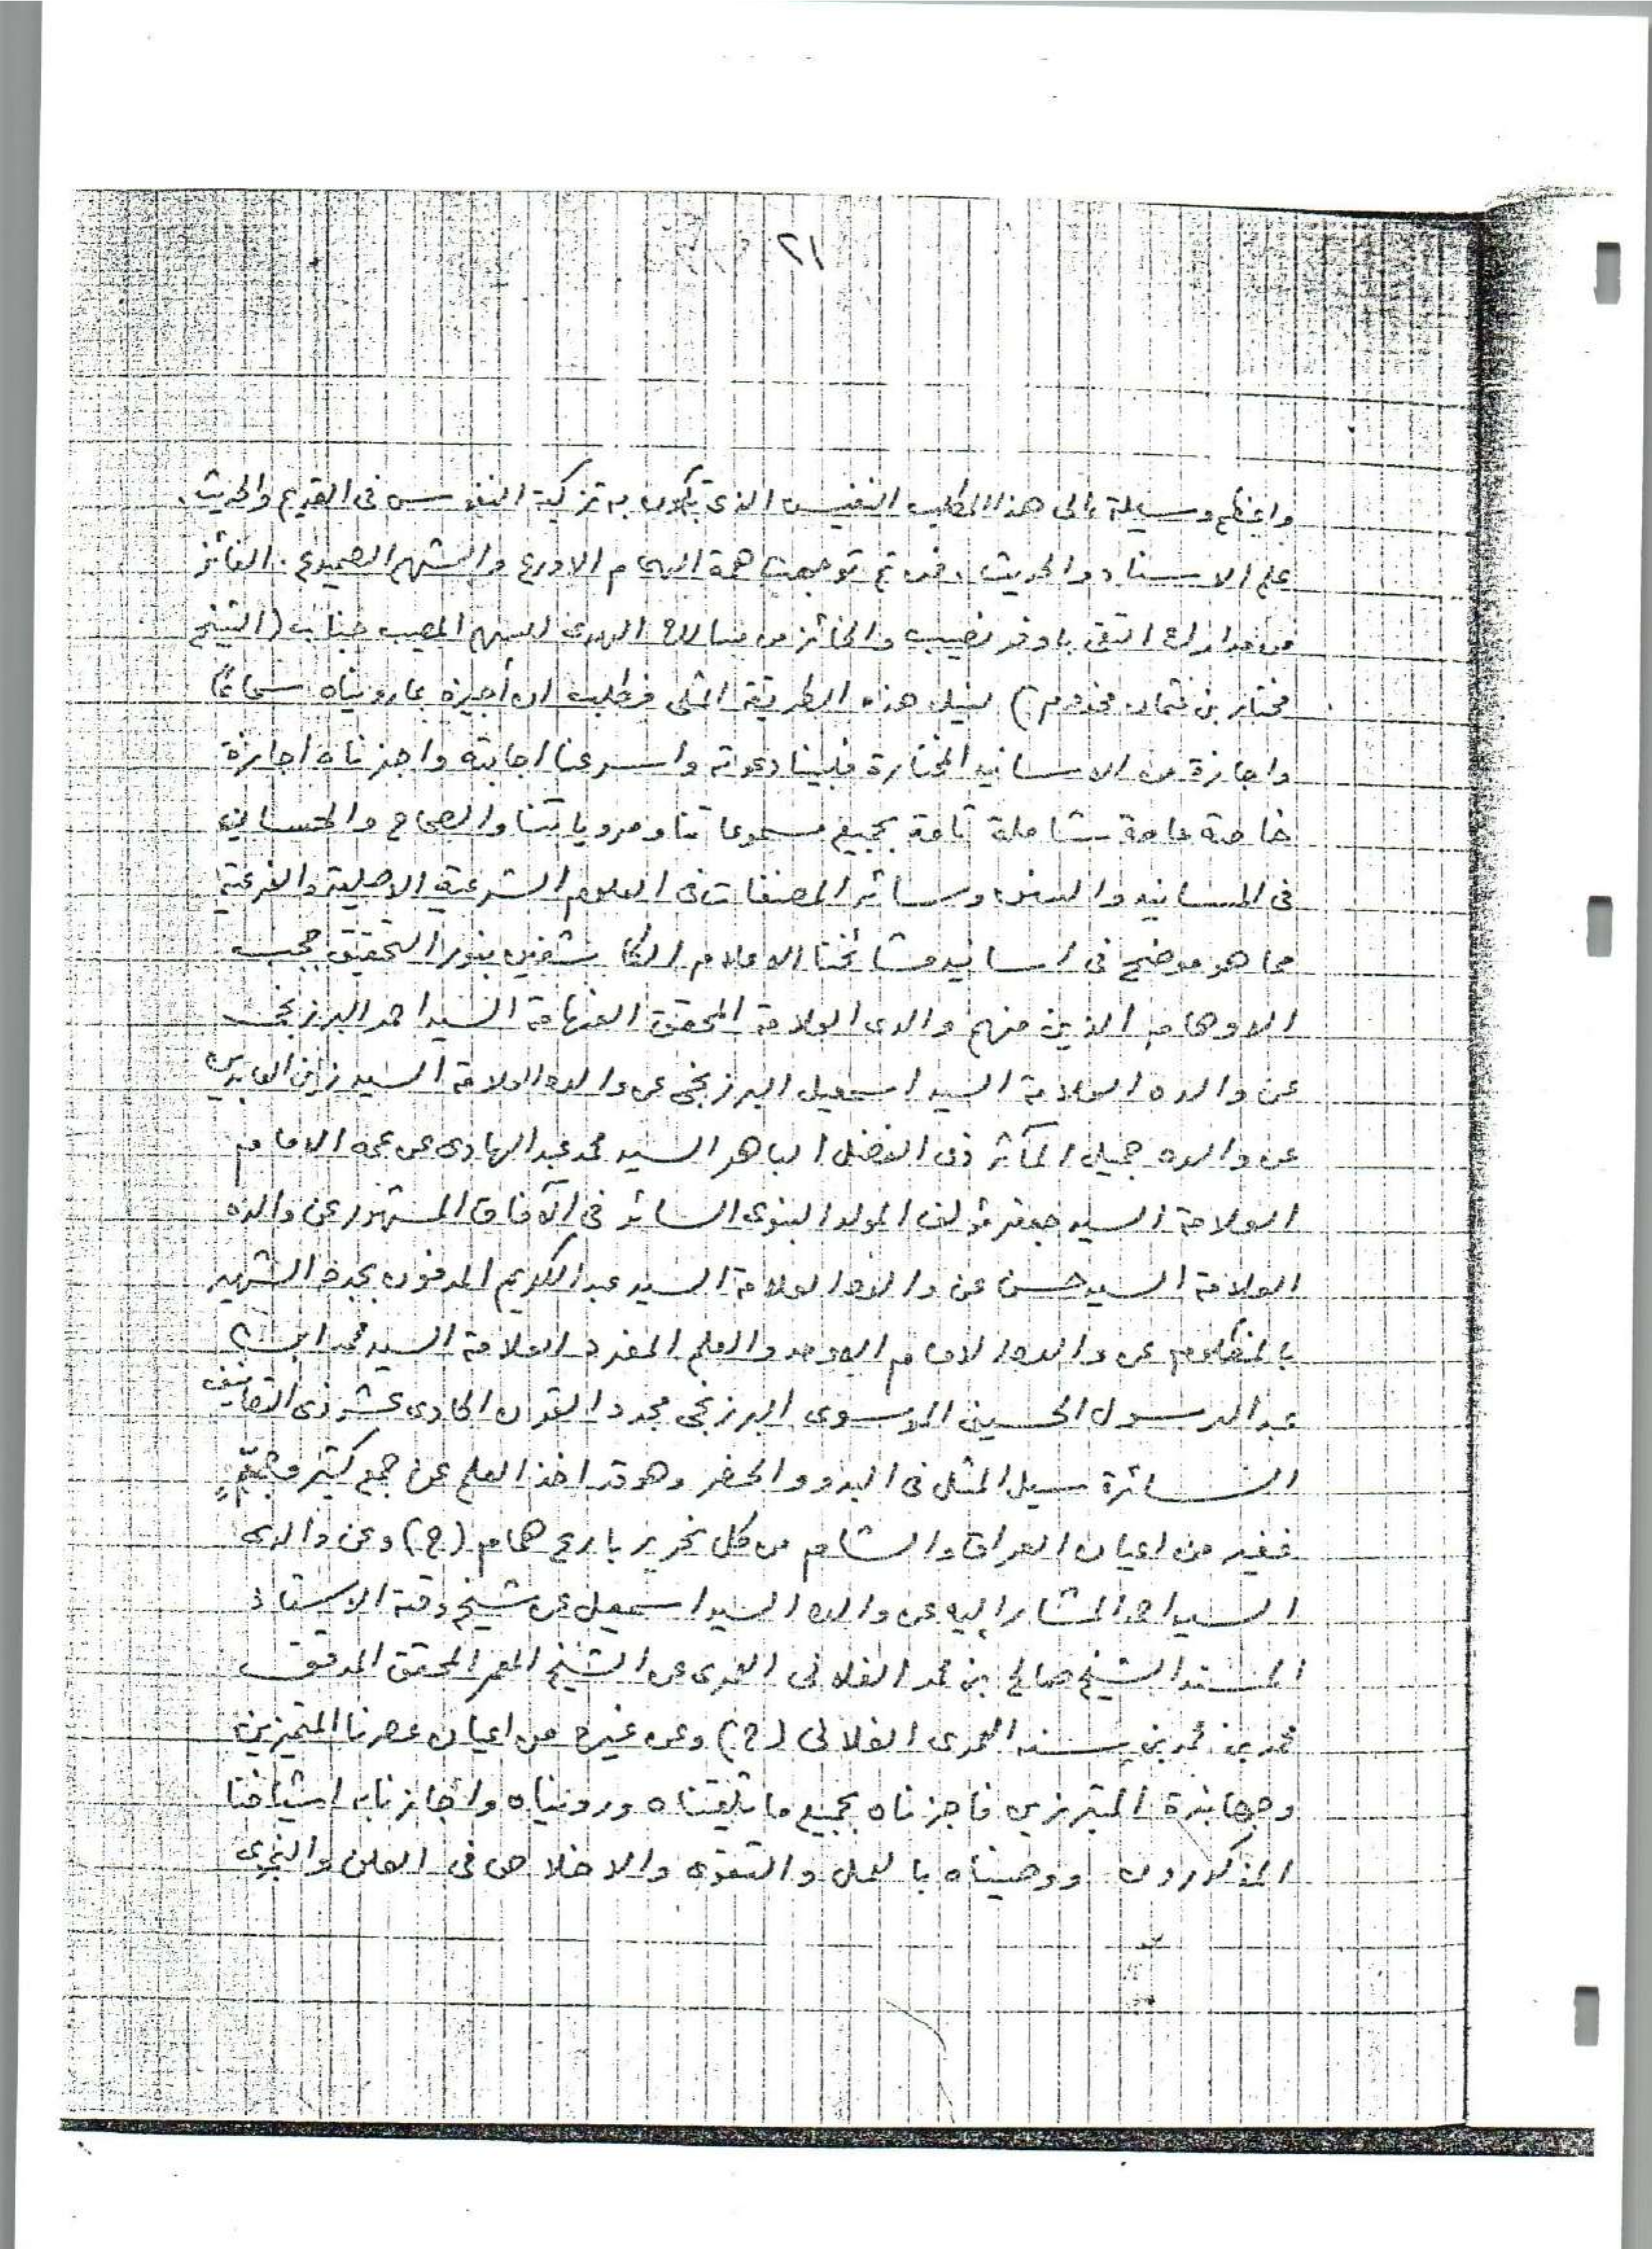 ٢١
واعظم وسيلة الى هذا المطلب النفيس الذى تكون به تزكية النفوس فى القديم والحديث
علم الاسناد والحديث . فمن ثم توجهت همة الهمام الاورع والشهم الصميدع . الفائز
من مدارك التقى باوفر نصيب والحائز من مسالك الهدى للسهم المصيب جناب (الشيخ
مختار بن عثمان مخدوم) لنيل هذه الطريقة المثلى فطلب ان أجيزه بما رويناه سماعاً
واجازة من الاسانيد المختارة فلبينا دعوته واسرعنا اجابته واجزناه اجازة
خاصة عامة شاملة تامة بجميع مسموعاتنا ومروياتنا والصحاح والحسان
فى المسانيد والسنن وسائر المصنفات فى العلوم الشرعية الاصلية والفرعية
مما هو موضح فى اسانيد مشائخنا الاعلام الكاشفين بنور التحقيق حجب
الاوهام الذين منهم والدى العلامة المحقق الفهامة السيد احمد البرزنجى
عن والده العلامة السيد اسمعيل البرزنجى عن والده العلامة السيد زين العابدين
عن والده جميل المآثر ذى الفضل الباهر السيد محمد عبد الهادى عن عمه الامام
العلامة السيد جعفر مؤلف المولد النبوى السائر فى الآفاق المشهور عن والده
العلامة السيد حسن عن والده العلامة السيد عبد الكريم المدفون بجدة الشهير
بالمظلوم عن والده الامام الاوحد والعلم المفرد العلامة السيد محمد ابن
عبد الرسول الحسينى الموسوى البرزنجى مجدد القرن الحادى عشر ذى التصانيف
السائرة سيل المثل فى البدو والحضر وهو قد اخذ العلم عن جمع كثير وجمٍّ
غفير من اعيان العراق والشام من كل نحرير بارع همام (ح) وعن والدى
السيد احمد المشار إليه عن والده السيد اسمعيل عن شيخ وقته الاستاذ
المسند الشيخ صالح بن محمد الفلانى العمرى عن الشيخ المعمر المحقق المدقق
محمد بن محمد بن سنه العمرى الفلانى (ح) وعن غيره من اعيان عصرنا المتميزين
وجهابذة المبرزين فاجزناه بجميع ما تلقيناه ورويناه وأجازنا به اشياخنا
المذكورون ووصيناه بالعمل والتقوى والاخلاص فى العلن والنجوى